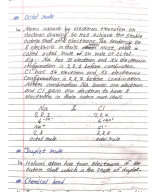 Octet rule
Atoms interact by electrons transfer or
electrons sharing to achieve the stable
outer shell of 8 electrons. The tendency of
8 electrons in their most shell is
called octet rule or on rule of octet.
Eg: Na has 11 electrons and its electronic
configuration is 2,8,1 before combination.
Cl has 17 electrons and its electronic
configuration is 2,8,7 before combination.
When combination Na loses one electron
and Cl gains one electron to have 8
electrons in their outer most shell.
Na Cl
2,8,1 2,8,7
2,8 2,8,8
octet rule octet rule
Duplet rule
Helium atom has two electrons in the
outer shell which is the state of duplet.
Chemical bond